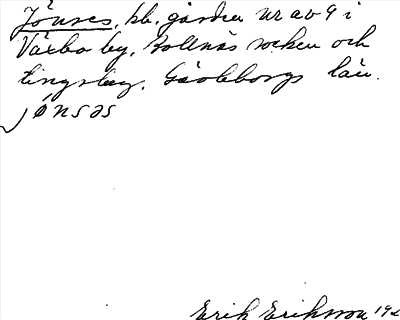 Jönses, bb. gården nr av 9 i
Växbo by, Bollnäs socken och
tingslag, Gävleborgs län.
jønsəs
Erik Eriksson 19